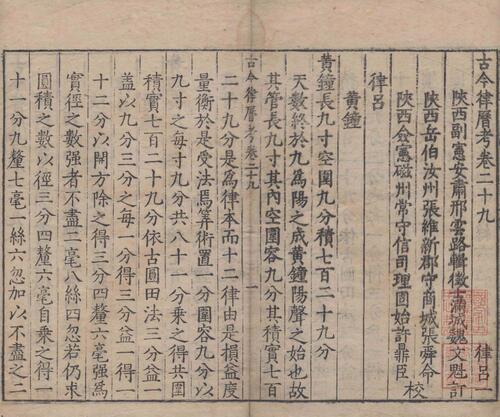 古今律曆考卷二十九 律呂一
陝西副憲安肅邢雲路輯 徵士滿城魏文魁訂
陝西岳伯汝州張維新 郡守商城張舜命
陝西僉憲磁州常守信 司理固始許鼎臣 校
律呂
黃鐘
黃鐘長九寸空圍九分積七百二十九分
天數終於九爲陽之成黃鐘陽聲之始也故
其管長九寸其內空圍容九分其積實七百
古今律曆考卷二十九 一
二十九分是爲律本而十二律由是損益度
量衡於是受法焉算術置一分圍容九分以
九寸之每寸九分共八十一分乘之得共圍
積實七百二十九分依古圓田法三分益一
葢以九分三分之每一分得三分益一得一
十二分以開方除之得三分四釐六毫強爲
實徑之數強者不盡二毫八絲四忽若仍求
圓積之數以徑三分四釐六毫自乘之得一
十一分九釐七毫一絲六忽加以不盡之二